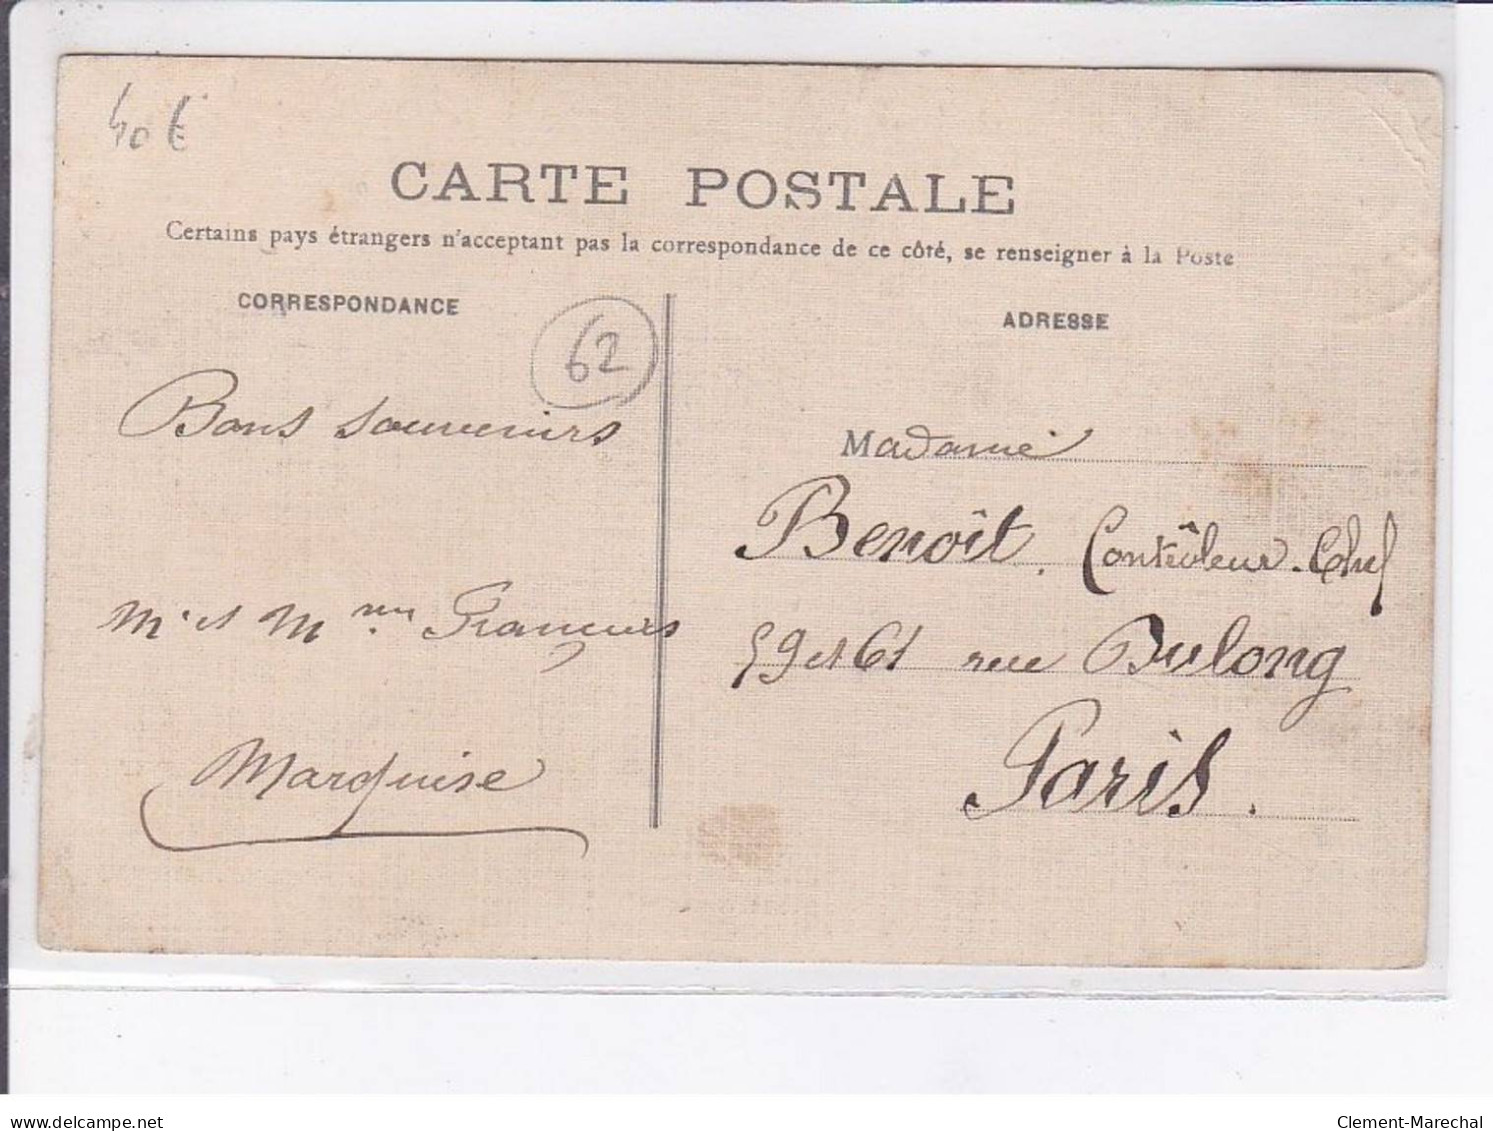 40 €
CARTE POSTALE
Certains pays étrangers n'acceptant pas la correspondance de ce côté, se renseigner à la Poste
CORRESPONDANCE
62
ADRESSE
Bons souvenirs
M. et Mme
Marquise
Madame
Benoît. Contrôleur-Chef
59 et 61 rue Dulong
Paris.
delcampe.net
Clement-Marechal